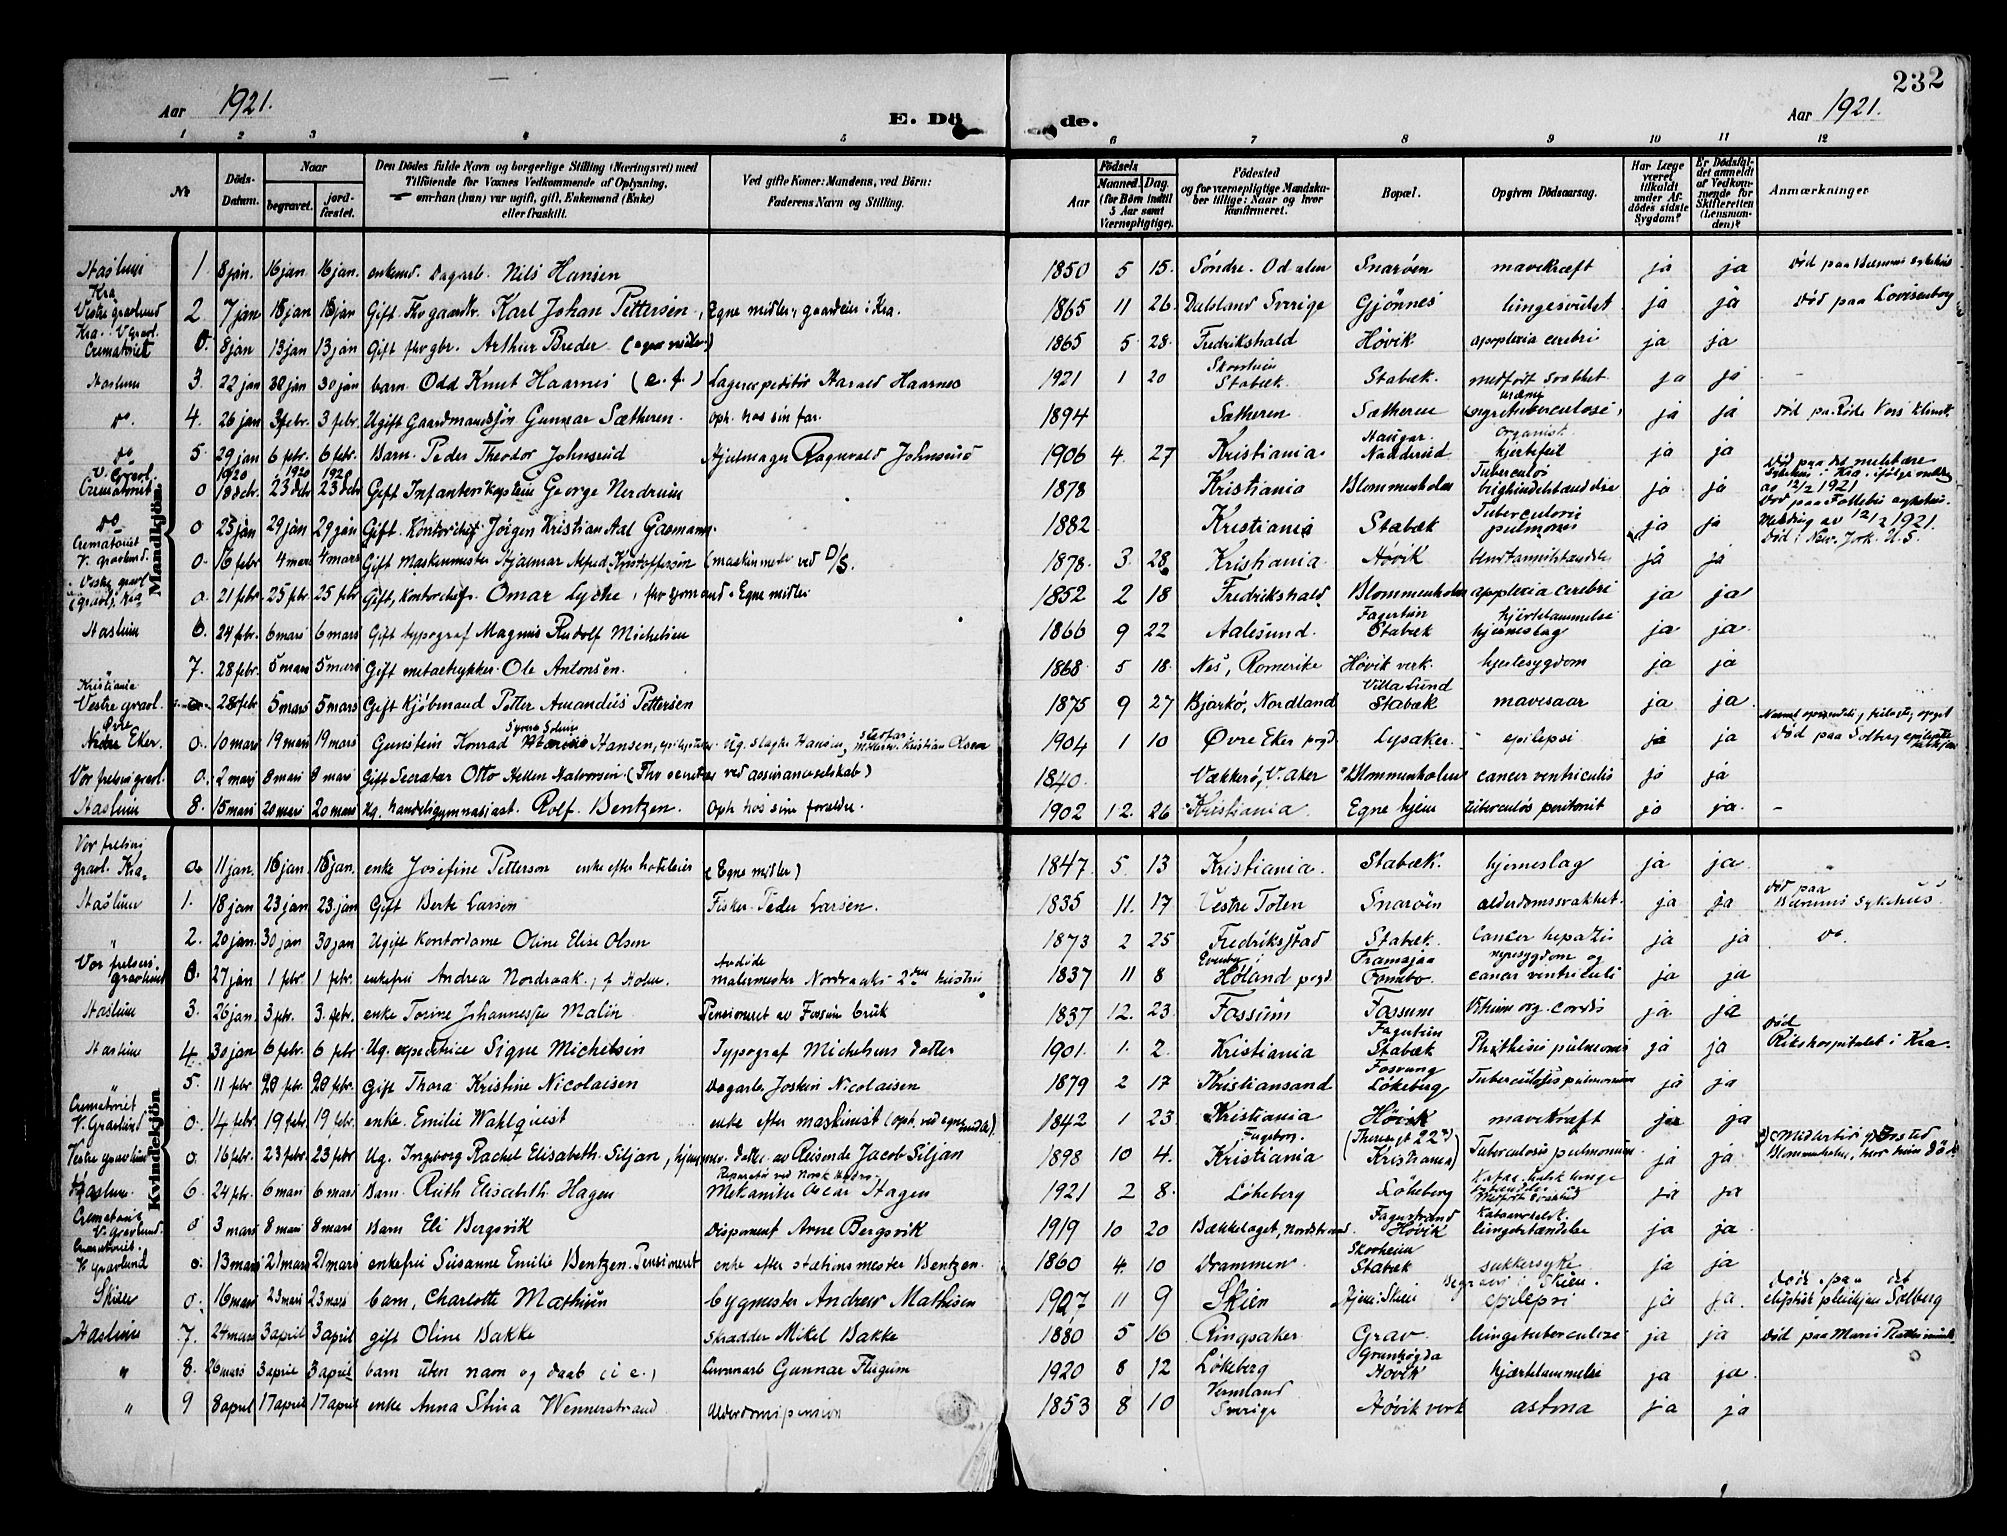 232
Aar 1921.
E. Dö de.
Aar 1921.
1 2 3 4 5 6 7 8 9 10 11 12
No
Döds-Datum.
Naar
begravet.
jordfæstet.
Den Dödes fulde Navn og borgerlige Stilling (Næringsvei) med
Tilföiende for Voxnes Vedkommende af Oplysning,
om han (hun) var ugift, gift, Enkemand (Enke)
eller fraskilt.
Ved gifte Koner: Mandens, ved Börn:
Faderens Navn og Stilling.
Födsels
Aar
Maaned.
Dag.
(for Börn indtil
5 Aar samt
Værnepligtige).
Födested
og for værnepligtige Mandskaber tillige: Naar og hvor
konfirmeret.
Bopæl.
Opgiven Dödsaarsag.
Har Læge
været
tilkaldt
under Afdödes sidste
Sygdom?
Er Dödsfaldet anmeldt
af Vedkommende for
Skifteretten
(Lensmanden)?
Anmærkninger
Mandkjön.
Haslum 1. 8 jan. 16 jan 16 jan. enkem. Dagarb. Nils Hansen 1850 5 15. Söndre Odalen Snaröen mavekræft ja ja Död paa Bærums sykehus
Kra Vestre gravlund 2 7 jan 15 jan 15 jan Gift Karl Johan Pettersen, Egne midler, gaardeier i Kra. 1865 11 26. Dalsland Sverige Gjönnes lungesvulst ja ja Död paa Lovisenberg
Kra. V. gravl. Crematoriet 0. 8 jan 13 jan 13 jan Gift Arthur Breder (egne midler) 1865 5 28. Fredrikshald Høvik apoplexia cerebri ja ja
Haslum 3. 22 jan 30 jan 30 jan barn Odd Knut Haarnes (e. f.) Lagerexpeditör Harald Haarnes 1921 1 20 Skogheim Stabæk Stabæk. medfödt svakhet ja ja -
do. 4. 26 jan 3 febr. 3 febr. Ugift Gaardmandssön Gunnar Sætheren. Oph. hos sin far. 1894 Sætheren Sætheren ja ja Död paa Röde Kors klinik
do 5 29 jan 6 febr. 6 febr. Barn Peder Theodor Johnsrud Hjulmager Ragnvald Johnsrud 1906 4. 27 Kristiania Hauger Nadderud Organisk hjertefeil ja ja
V. Gravl. Crematoriet 0 1920 18 dcbr. 1920 23 dcbr 1920 23 dcbr Gift Infanterikaptein George Nerdrum 1878 Kristiania Blommenholm Tuberculos ja ja Död paa det militære sykehus i Kra. ifölge melding av 12/2 1921
do Crematoriet 0 25 jan 29 jan 29 jan Gift. Kontorchef Jörgen Kristian Aal Gasmann. 1882 Kristiania Stabæk Tuberculosis pulmones ja ja Melding av 12/2 1921.
V. Gravlund. 0. 16 febr 4 mars 4 mars Gift Maskinmester Hjalmar Alfred Kristoffersen (maskinmester ved D/S. 1878. 3. 28 Kristiania. Høvik ja ja Död i New. York. U.S.
Vestre gravl. Kra 0. 21 febr. 25 febr 25 febr Gift, Kontorchef. Omar Lyche, Egne midler 1852 2 18 Fredrikshald Blommenholm apoplexia cerebri ja ja
Haslum 6. 24 febr. 6 mars 6 mars Gift typograf Magnus Rudolf Michelsen 1866 9 22 Aalesund. Fagertun Stabæk hjertelammelse hjerneslag ja ja.
7. 28 febr. 5 mars 5 mars Gift metaltrykker Ole Antonsen. 1868 5 18. Nes, Romerike Høvik verk. hjertesygdom ja ja
Kristiania Vestre gravl. 0 28 febr 5 mars 5 mars Gift Kjöbmand Petter Amandus Pettersen 1875 9 27 Bjarkö, Nordland Villa Lund Stabæk mavesaar ja ja.
Øvre Eker. 0. 10 mars 19 mars 19 mars Gunstein Konrad Hansen, 1904 1 10 Øvre Eker pgd Lysaker. epilepsi ja ja Död paa Solberg
Vor frelsers gravl. 0. 2 mars 8 mars 8 mars Gift Secretær Otto Halvorsen (ved assuranceselskab) 1840. Vækkerö, V. Aker Blommenholm cancer ventriculi ja ja
Haslum 8. 15 mars 20 mars 20 mars Ug. handelsgymnasiast. Rolf Bentzen. Oph. hos sine forældre. 1902 12. 26 Kristiania. Egne hjem tuberculös peritonit ja ja. -
Kvindekjön
Vor frelsers gravl. Kra. 0. 11 jan. 15 jan 15 jan. enke Josefine Petterson enke efter hoteleier (Egne midler) 1847. 5 13 Kristiania. Stabæk. hjerneslag ja ja.
Haslum 1. 18 jan 23 jan 23 jan Gift Berte Larsen Fisker Peder Larsen. 1835 11. 17 Vestre Toten Snaröen alderdomssvakhet. ja ja Död paa Bærums Sykehus.
" 2. 20 jan. 30 jan 30 jan Ugift Kontordame Oline Elise Olsen 1873 2 25 Fredriksstad Stabæk. Cancer hepatis ja ja do.
Vor frelsers gravlund 0. 27 jan 1 febr. 1 febr. enkefru Andrea Nordraak, f. Holm. Avdöde malermester Nordraaks 2den hustru 1837 11 8 Høland pgd Fornebo. cancer ventriculi ja ja
Haslum 3. 26 jan. 3 febr. 3. febr. enke Torine Johannesen Malin Pensioneret av Fossum bruk 1837 12. 23 Fossum Fossum Vitium org cordis ja ja
Haslum 4. 30 jan 6 febr. 6 febr. Ug. expeditrice Signe Michelsen Typograf Michelsens datter 1901. 1. 2. Kristiania Fagertun Stabæk Phthisis pulmonis ja ja Död Rikshospitalet i Kra.
" 5. 11 febr. 20 febr. 20 febr. Gift Thora Kristine Nicolaisen Dagarb. Nicolaisen 1879 2 17 Kristiansand Løkeberg Tuberculosis pulmonum ja ja
Crematoriet V. Gravlund 0. 14 febr 19 febr. 19 febr. enke Emilie Wahlquist enke efter maskinist (oph. ved egne midler). 1842 1 23 Kristiania Høvik mavekræft ja ja
Vestre gravlund 0. 16 febr. 23 febr. 23 febr Ug. Ingeborg Rachel Elisabeth Siljan, hjemmev. datter av Reisende Jacob Siljan 1898 10 4. Kristiania (Theresgt 22 Kristiania) Tuberculosis pulmonum ja ja Blommenholm, hvor hun döde
Haslum 6. 24 febr. 6 mars 6 mars Barn Ruth Elisabeth Hagen Reparatör ved Norsk Hydro. Mekaniker Oscar Hagen 1921 2 8. Løkeberg Løkeberg medfödt svakhed ja ja
Crematoriet V. Gravlund. 0 3 mars 8 mars 8 mars Barn Eli Bergsvik Disponent Arne Bergsvik 1919 10 20 Bækkelaget, Nordstrand. Fagerstrand Høvik Katarralsk lungebetændelse ja ja.
Crematoriet. V gravlund 0. 13 mars 21 mars 21 mars enkefru Susanne Emilie Bentzen. Pensioneret enke efter stationsmester Bentzen. 1860 4. 10 Drammen Skovheim Stabæk sukkersyke ja ja
Skien 0. 16 mars 23 mars 23 mars barn, Charlotte Mathisen bygmester Andrew Mathisen 1907 11 9 Skien Hjem: Skien Begraves i Skien. epilepsi ja ja. Död paa det epleptisk pleiehjem Solberg
Haslum 7. 24 mars 3 april 3 april gift Oline Bakke Skrædder Mikal Bakke 1880 5 16 Ringsaker Grav. lungetuberculose ja ja Död paa
" 8. 26 mars 3 april 3 april barn uten navn og daab (i e.) Gunnar Flugum 1920 8 12 Løkeberg Grønhögda Høvik hjertelammelse ja ja.
" 9 8 april 17 april 17 april enke Anna Stina Wennerstrand Alderdomspension 1853 8 10 Vermland Sverige Høvik verk astma ja ja